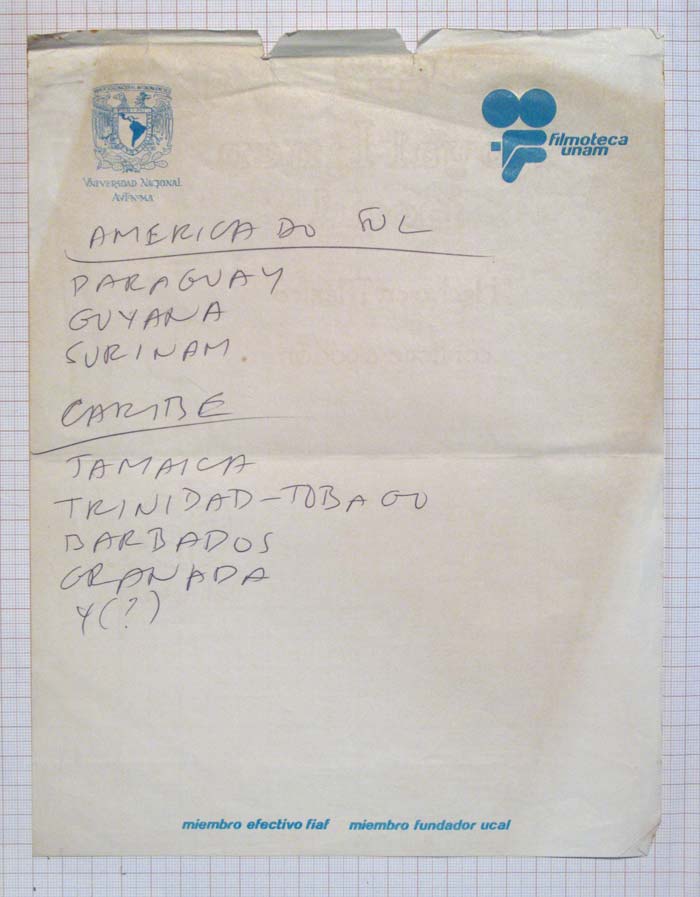 filmoteca
unam
UNIVERSIDAD NACIONAL
AVTNMA
AMERICA DO SUL
PARAGUAY
GUYANA
SURINAM
CARIBE
JAMAICA
TRINIDAD-TOBAGO
BARBADOS
GRANADA
Y (?)
miembro efectivo fiaf miembro fundador ucal